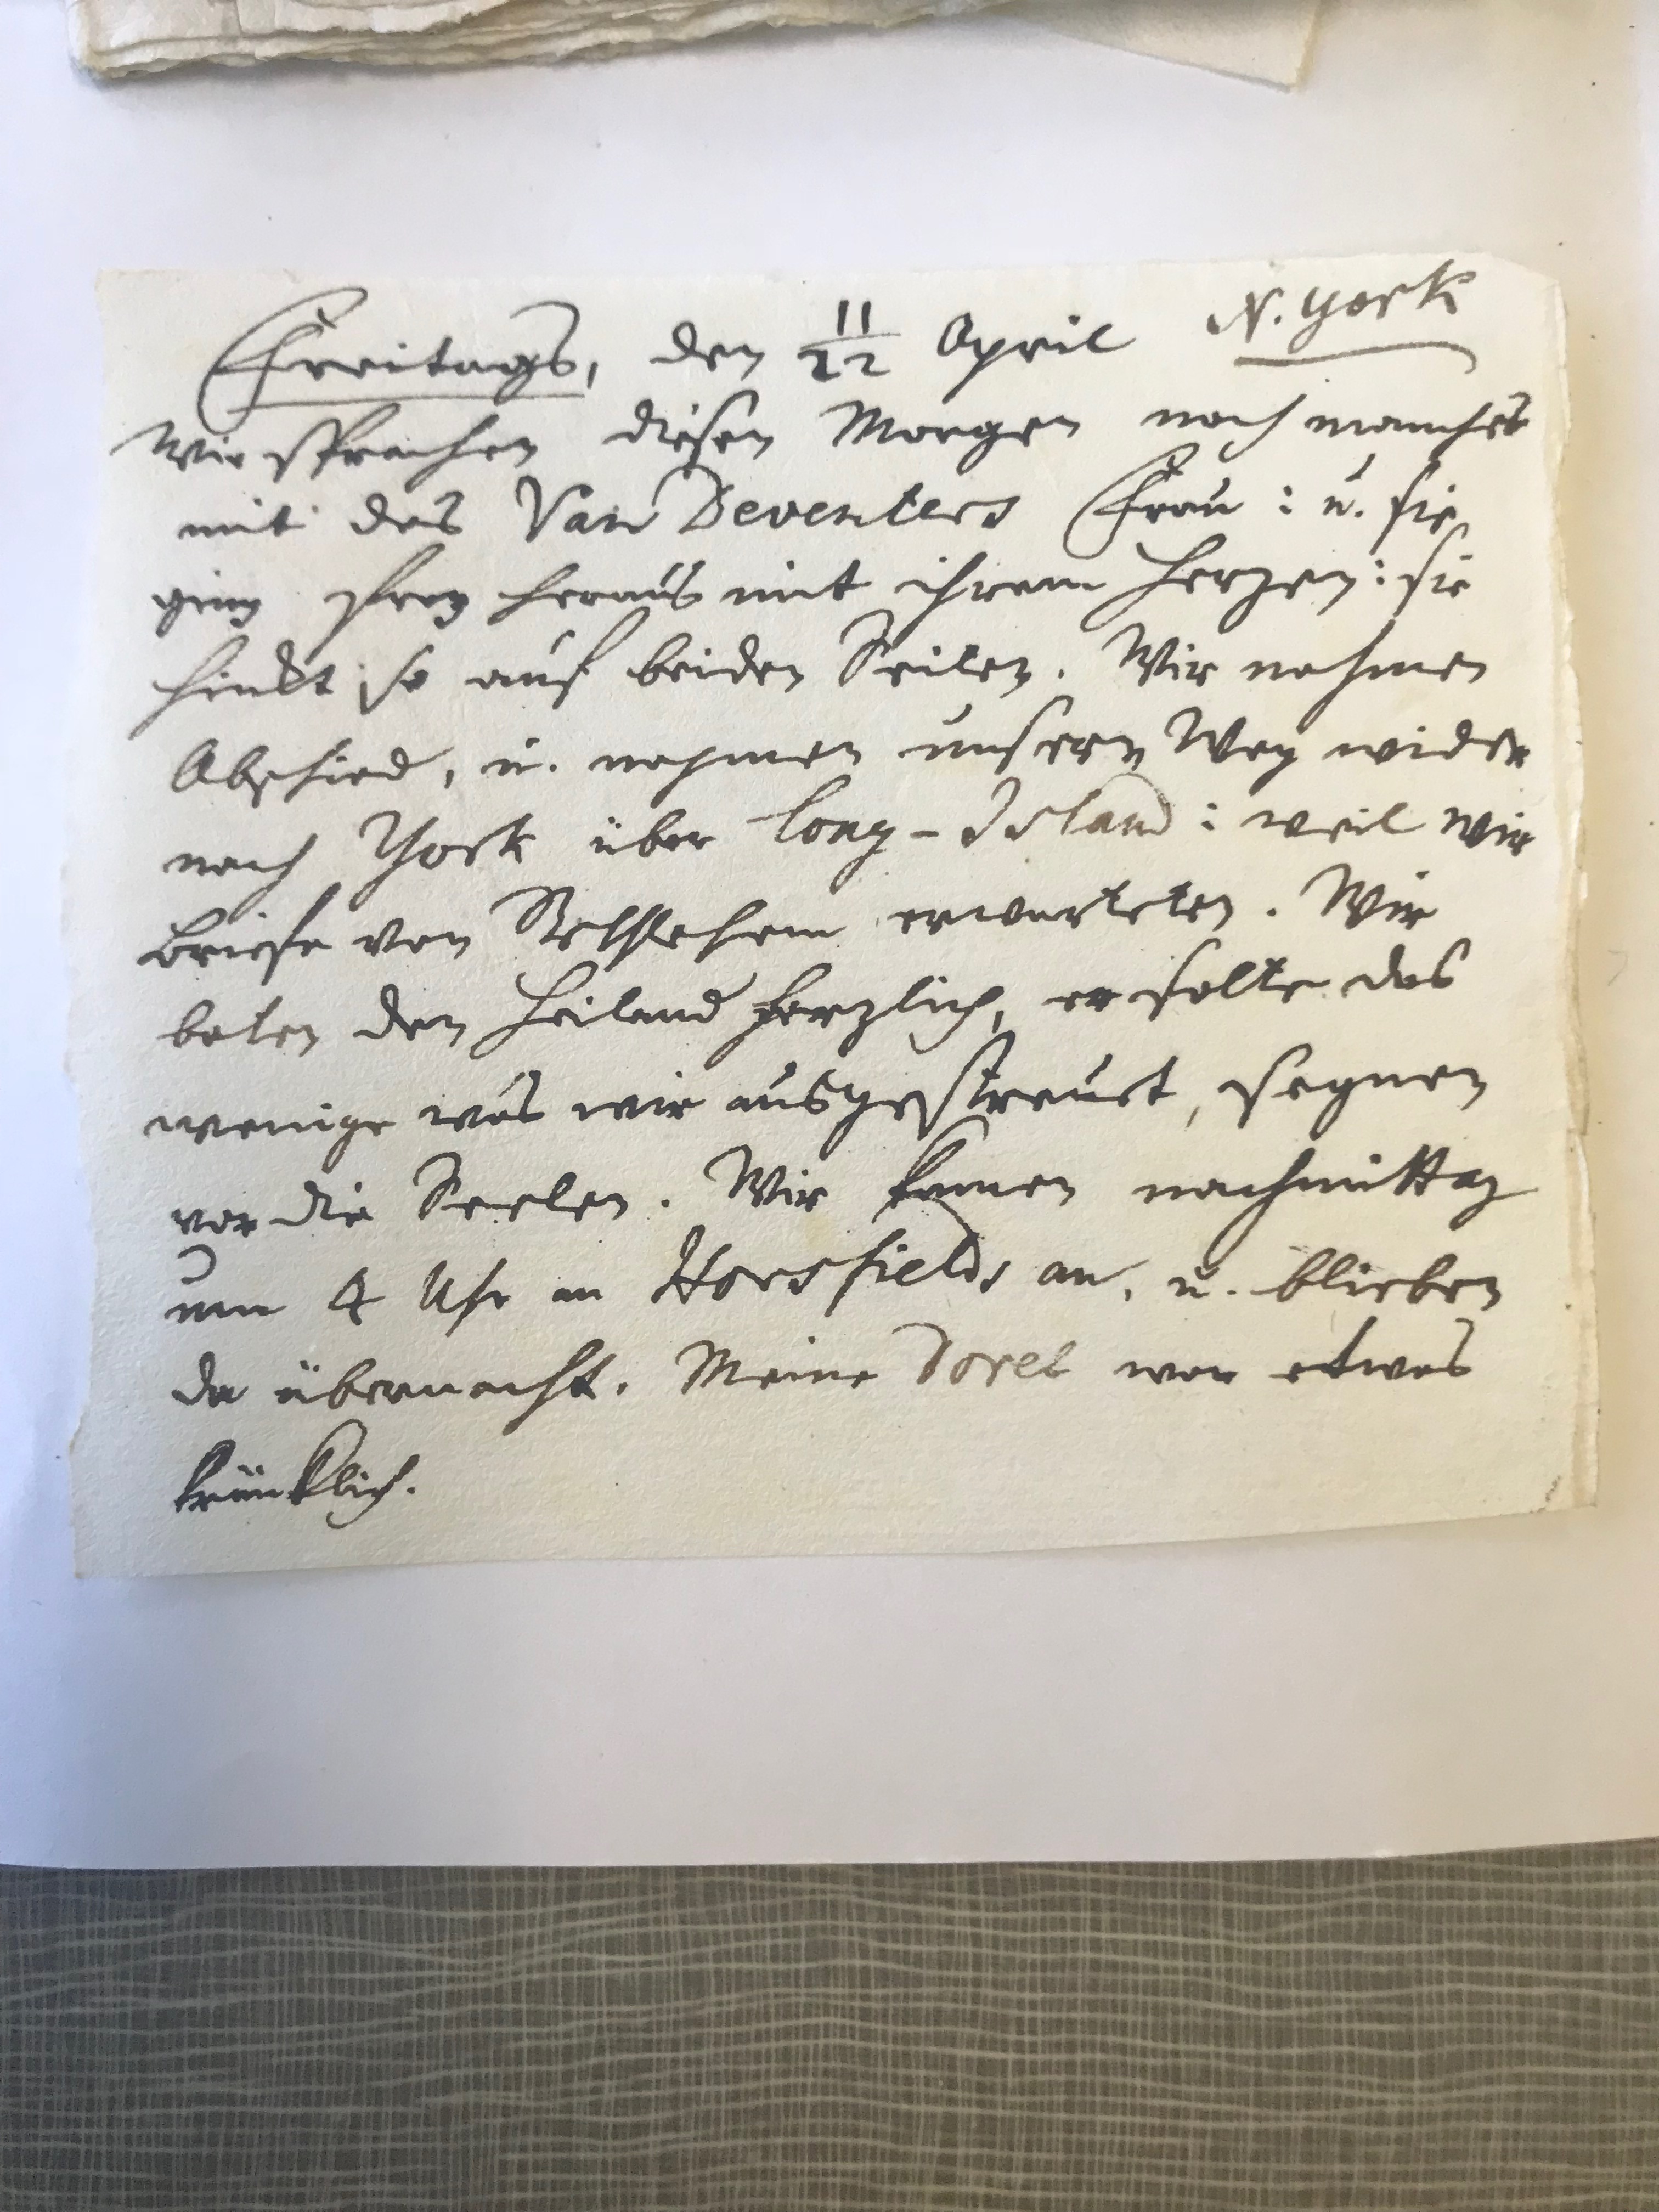 Freitags, den 11/22 April N. York
Wir sprachen diesen Morgen noch manches
mit des Van Deventers Frau: u. sie
ging frey heraus mit ihrem Herzen: sie
hinkt so auf beiden Seiten. Wir nahmen
Abschied, u. nahmen unsern Weg wider
nach York über Long-Island: weil wir
Briefe von Bethlehem erwarteten. Wir
baten den Heiland herzlich, er solte das
wenige was wir ausgestreuet, segnen
vor die Seelen. Wir kamen nachmittag
um 4 Uhr in Horsfields an, u. blieben
da übernacht. Meine Dorel war etwas
kränklich.